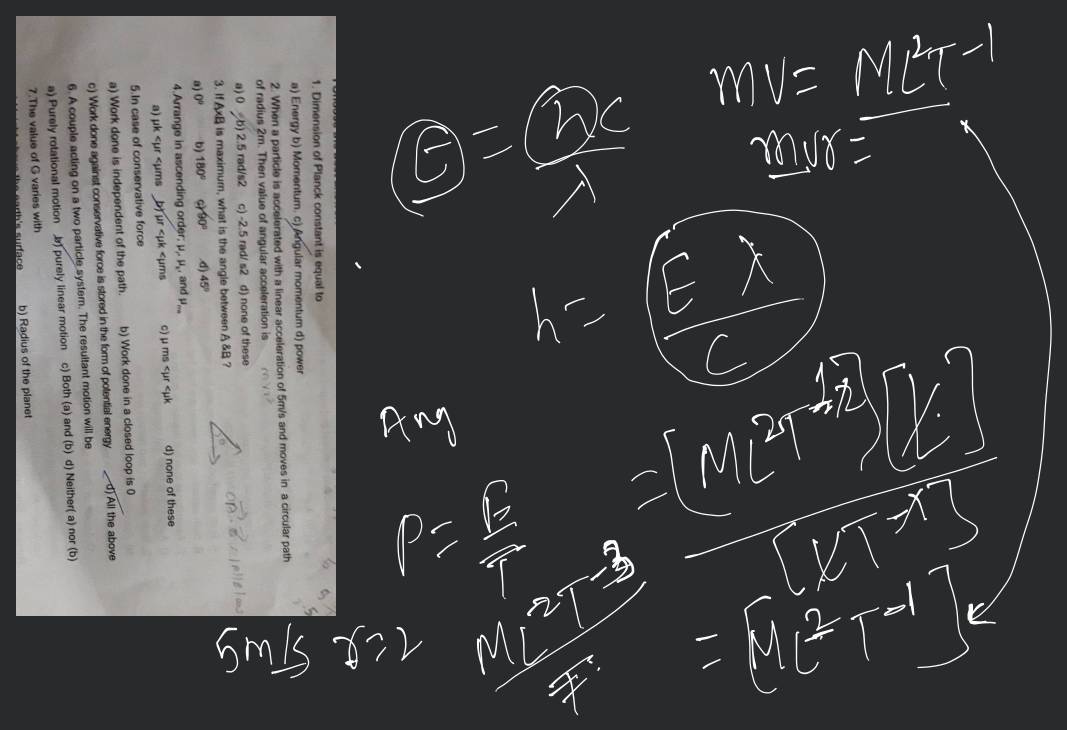 1. Dimension of Planck constant is equal to
a) Energy b) Momentum c) Angular momentum d) power
2. When a particle is accelerated with a linear acceleration of 5m/s and moves in a circular path
of radius 2m. Then value of angular acceleration is
a) 0 b) 2.5 rad/s2 c) -2.5 rad/ s2 d) none of these
3. If AxB is maximum, what is the angle between A &B ?
a) 0° b) 180° c) 90° d) 45°
4.Arrange in ascending order; μr, μk, and μms
a) μk <μr <μms b) μr <μk <μms c) μ ms <μr <μk d) none of these
5.In case of conservative force
a) Work done is independent of the path. b) Work done in a closed loop is 0
c) Work done against conservative force is stored in the form of potential energy d) All the above
6. A couple acting on a two particle system. The resultant motion will be
a) Purely rotational motion b) purely linear motion c) Both (a) and (b) d) Neither( a) nor (b)
7.The value of G varies with
the earth's surface b) Radius of the planet
E = hc
λ
mv = ML²T-1
mvr =
h = E λ
C
Ang
= [ML²T-2] [L]
[LT-1]
= [ML²T-1]
P = E
T
ML²T-3
T
5m/s r=2